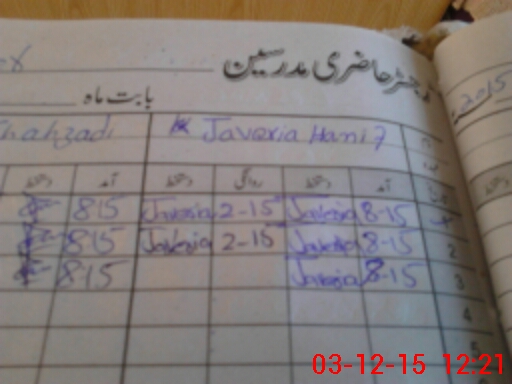 رجسٹر حاضری مدرسین
2015
بابت ماہ
Shahzadi Javeria Hanif
دستخط آمد دستخط روانگی دستخط آمد
8-15 Javeria 2-15 Javeria 8-15
8-15 Javeria 2-15 Javeria 8-15 2
8-15 Javeria 8-15 3
4
5
03-12-15 12:21